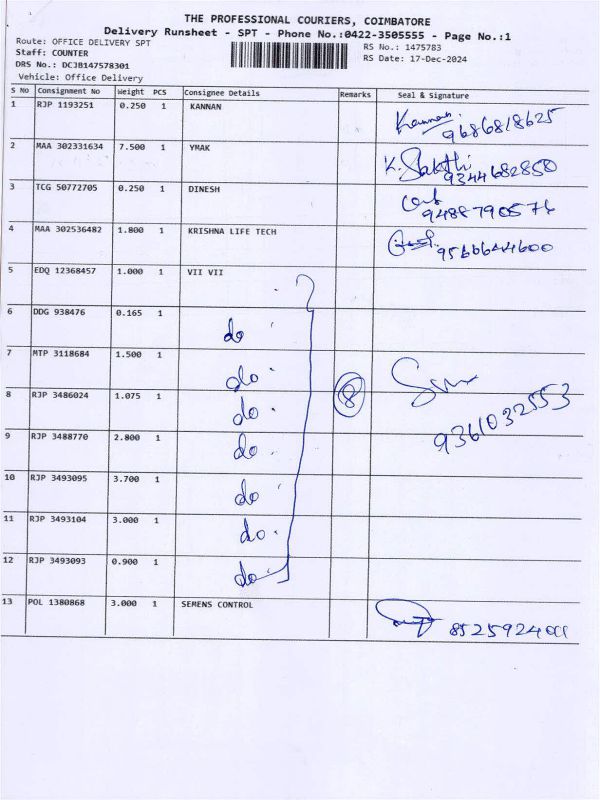 THE PROFESSIONAL COURIERS, COIMBATORE
Delivery Runsheet - SPT - Phone No.:0422-3505555 - Page No.:1
Route: OFFICE DELIVERY SPT
Staff: COUNTER
DRS No.: DCJB147578301
Vehicle: Office Delivery
RS No.: 1475783
RS Date: 17-Dec-2024
S No Consignment No Weight PCS Consignee Details Remarks Seal & Signature
1 RJP 1193251 0.250 1 KANNAN Kannan 9686818625
2 MAA 302331634 7.500 1 YMAK K. Sakthi 9344682850
3 TCG 50772705 0.250 1 DINESH
4 MAA 302536482 1.800 1 KRISHNA LIFE TECH
5 EDQ 12368457 1.000 1 VII VII
6 DDG 938476 0.165 1 do
7 MTP 3118684 1.500 1 do
8 RJP 3486024 1.075 1 do 8 9361032553
9 RJP 3488770 2.800 1 do
10 RJP 3493095 3.700 1 do
11 RJP 3493104 3.000 1 do
12 RJP 3493093 0.900 1 do
13 POL 1380868 3.000 1 SEMENS CONTROL